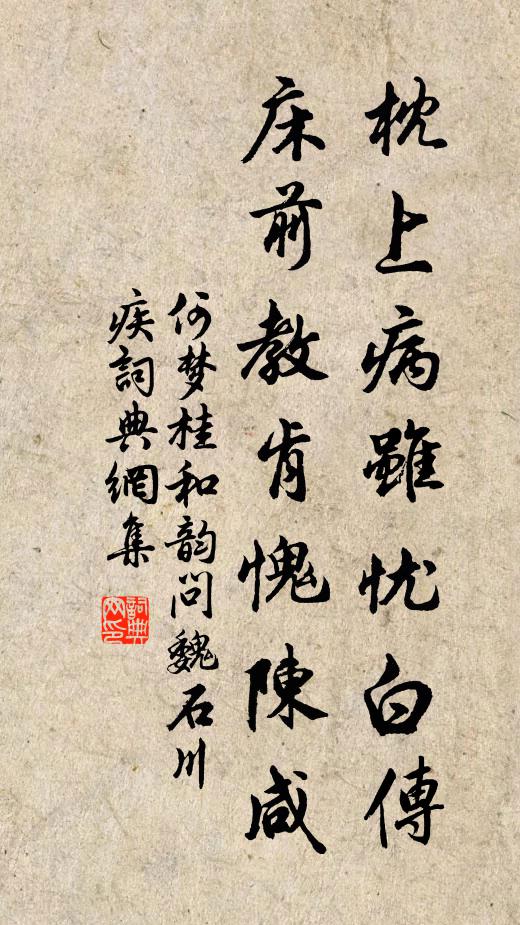 枕上病雖忧白傅
床前教肯愧陳咸
何梦桂和韵問魏石川
疾詞典網集
詞典网印